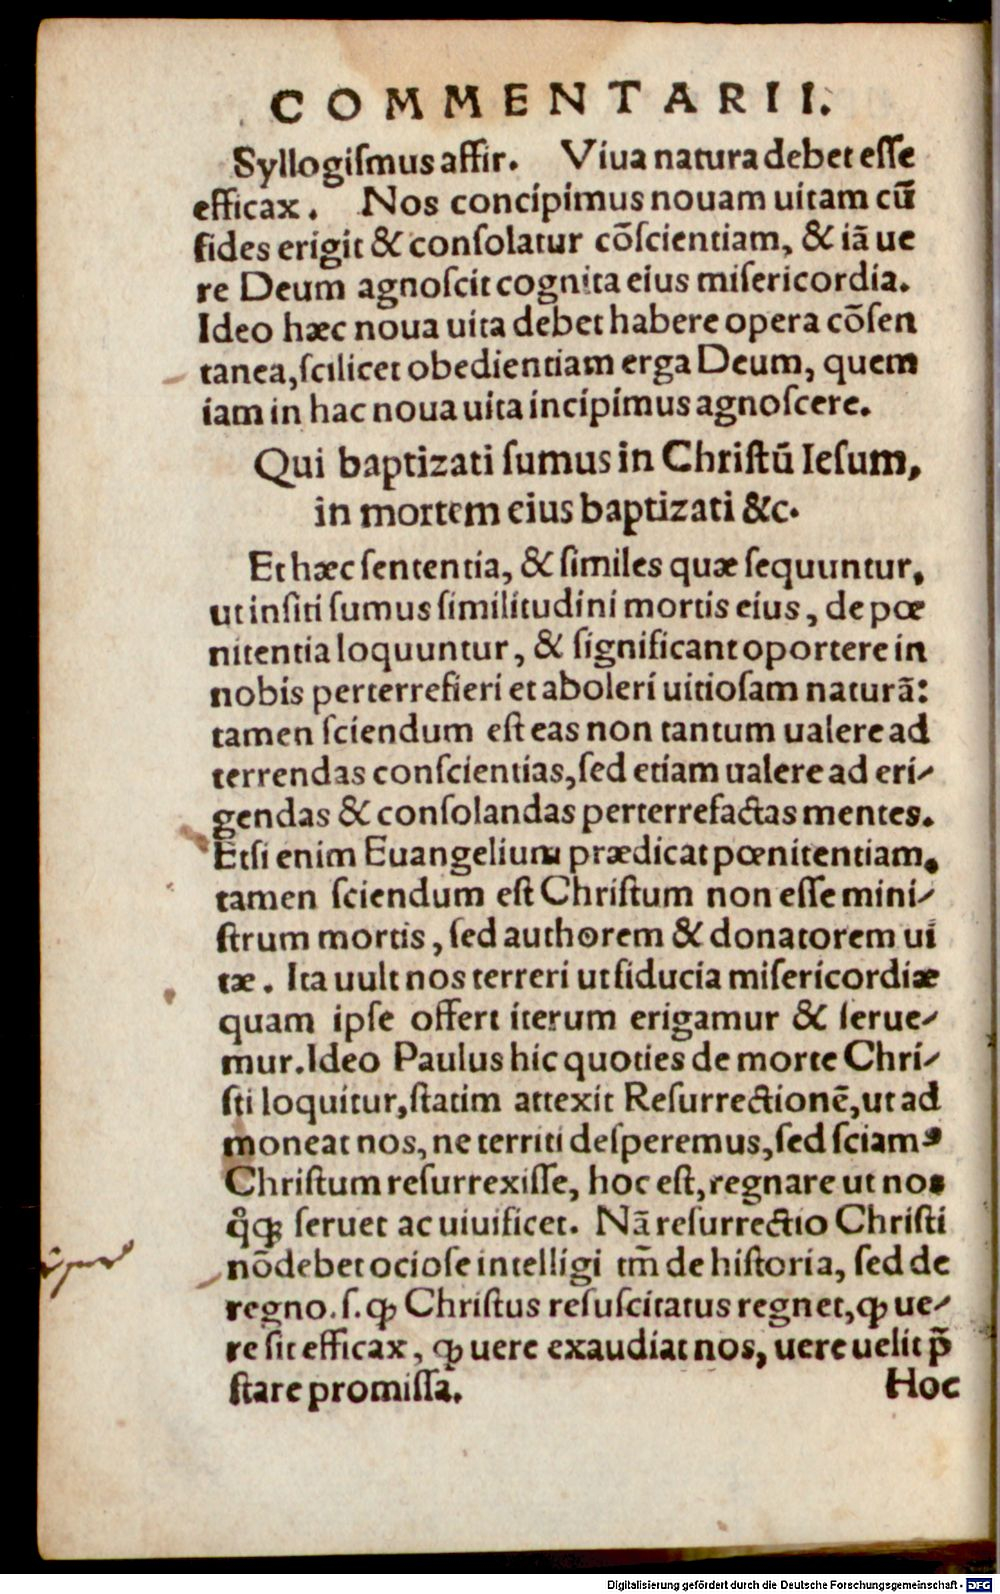 COMMENTARII.
Syllogiſmus affir. Viua natura debet eſſe
efficax. Nos concipimus nouam uitam cū
fides erigit & conſolatur cōſcientiam, & iā ue
re Deum agnoſcit cognita eius miſericordia.
Ideo hæc noua uita debet habere opera cōſen
tanea, ſcilicet obedientiam erga Deum, quem
iam in hac noua uita incipimus agnoſcere.
Qui baptizati ſumus in Chriſtū Ieſum,
in mortem eius baptizati &c.
Et hæc ſententia, & ſimiles quæ ſequuntur,
ut inſiti ſumus ſimilitudini mortis eius, de pœ
nitentia loquuntur, & ſignificant oportere in
nobis perterrefieri et aboleri uitioſam naturā:
tamen ſciendum eſt eas non tantum ualere ad
terrendas conſcientias, ſed etiam ualere ad eri-
gendas & conſolandas perterrefactas mentes.
Etſi enim Euangelium prædicat pœnitentiam,
tamen ſciendum eſt Chriſtum non eſſe mini-
ſtrum mortis, ſed authorem & donatorem ui
tæ. Ita uult nos terreri ut fiducia miſericordiæ
quam ipſe offert iterum erigamur & ſerue-
mur. Ideo Paulus hic quoties de morte Chri-
ſti loquitur, ſtatim attexit Reſurrectionē, ut ad
moneat nos, ne territi deſperemus, ſed ſciamꝰ
Chriſtum reſurrexiſſe, hoc eſt, regnare ut nos
qͦꝗ ſeruet ac uiuificet. Nā reſurrectio Chriſti
nō debet ocioſe intelligi tm̄ de hiſtoria, ſed de
regno. ſ. ꝙ Chriſtus reſuſcitatus regnet, ꝙ ue-
re ſit efficax, ꝙ uere exaudiat nos, uere uelit p̄
ſtare promiſſa.
Hoc
Digitalisierung gefördert durch die Deutsche Forschungsgemeinschaft - DFG